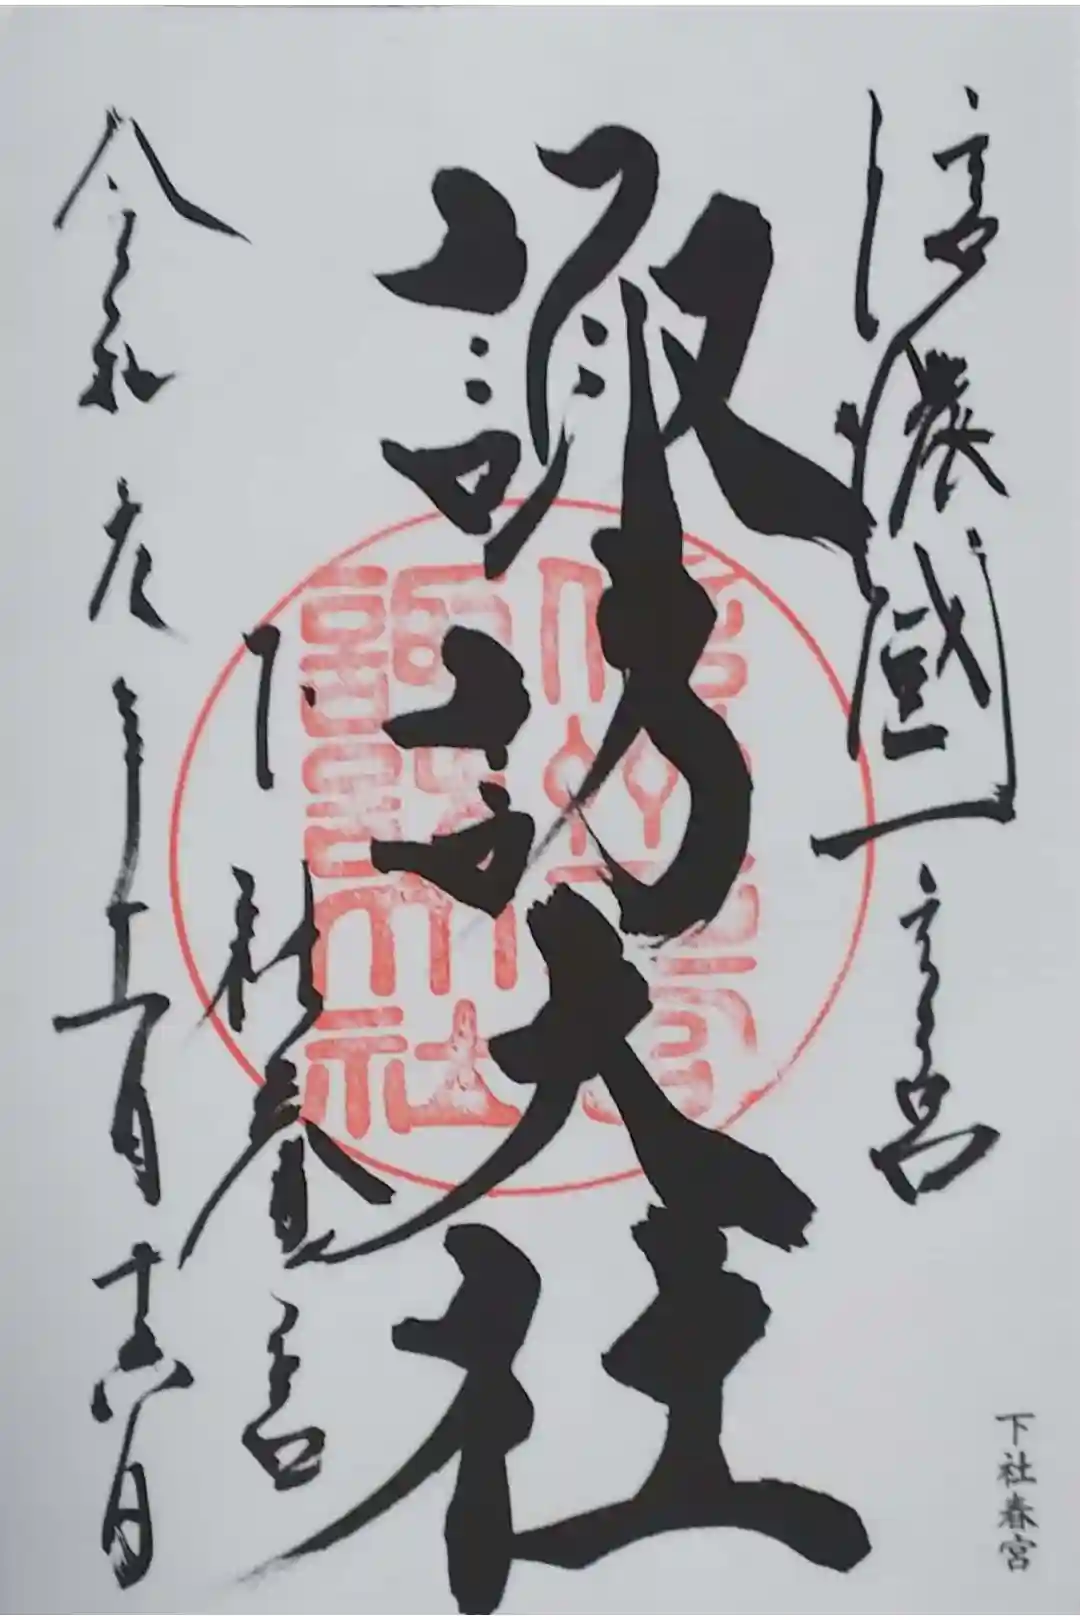 信濃國一之宮
諏訪大社
下社春宮
令和元年十一月十六日
諏訪大社
下社春宮